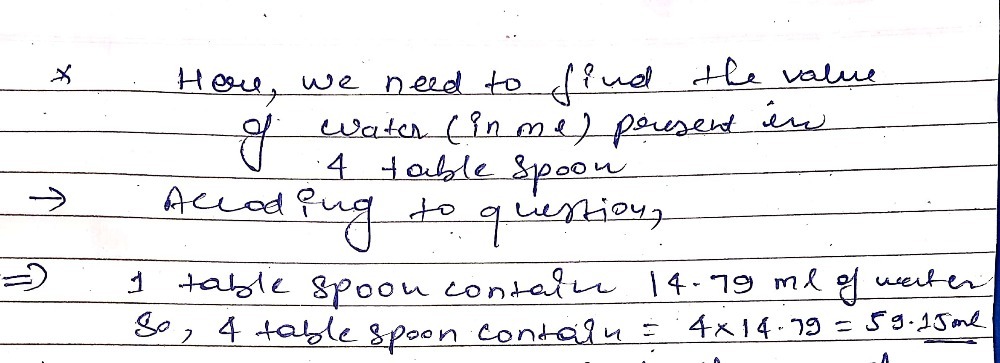 * Here, we need to find the value
of water (in ml) present in
4 table spoon
→ Accoding to question,
⇒ 1 table spoon contain 14.79 ml of water
So, 4 table spoon contain = 4x14.79 = 59.15ml